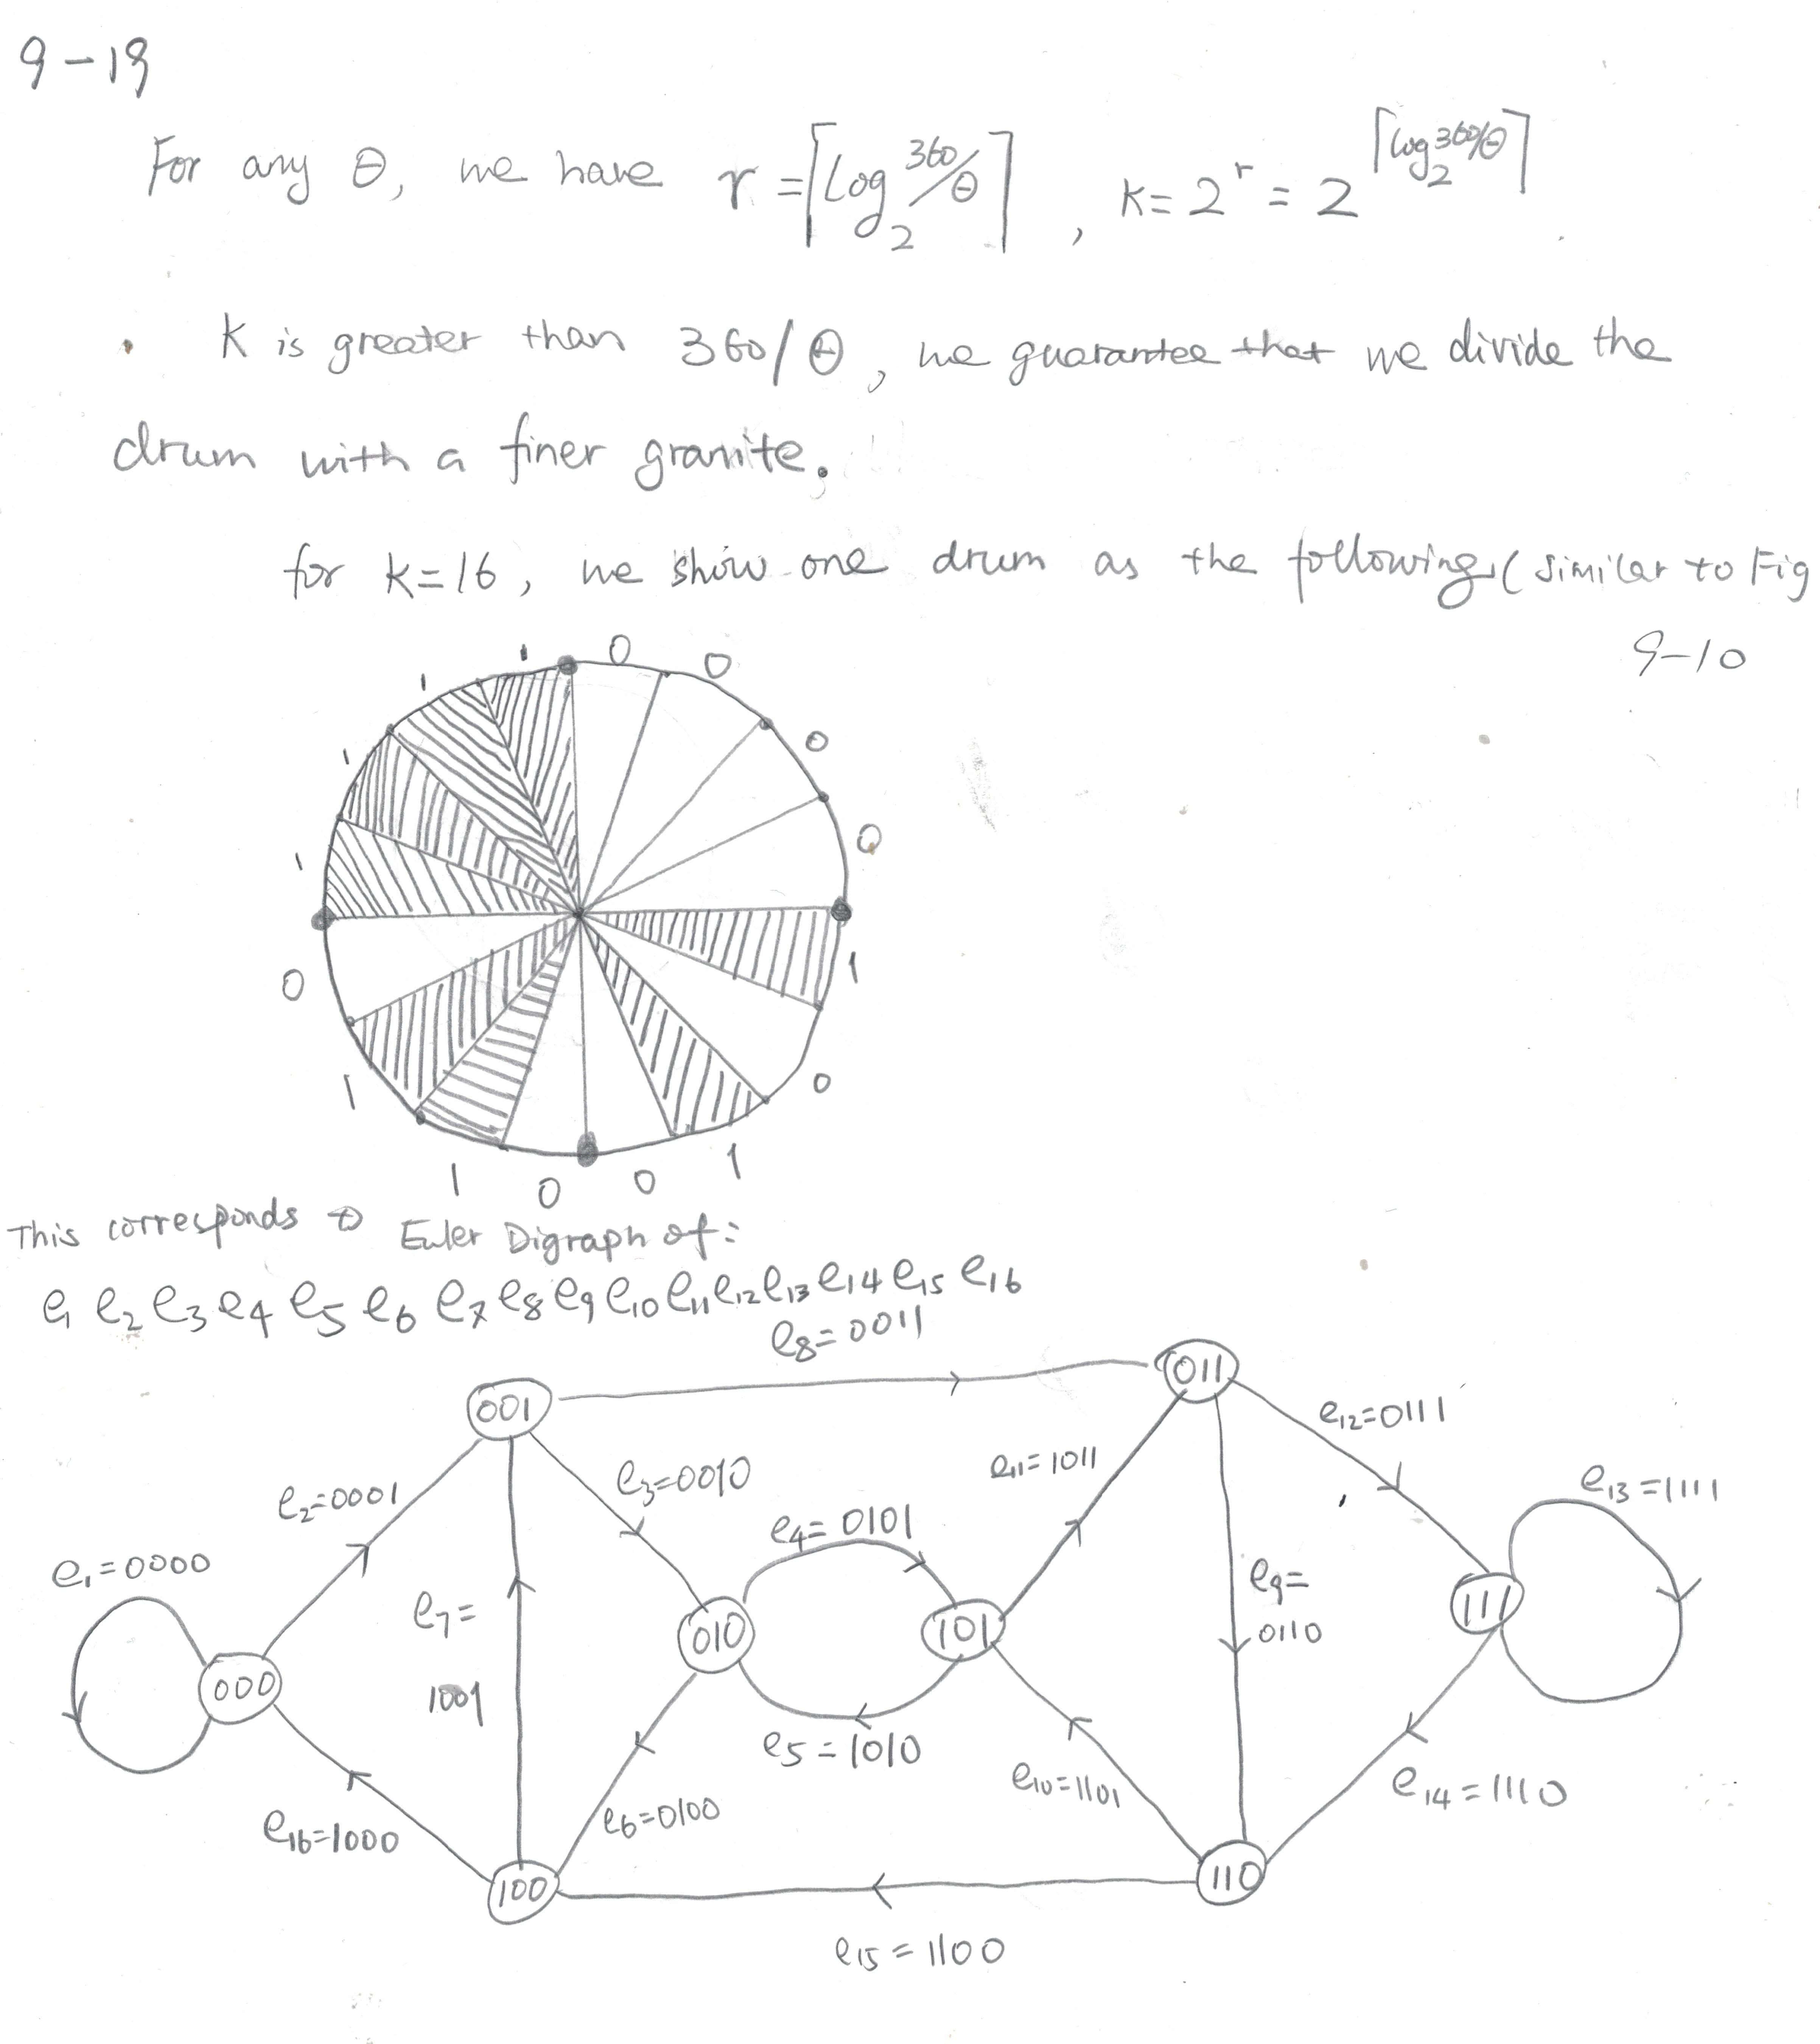 9-19
For any θ, we have r = ⌈Log₂ 360/θ⌉, K = 2^r = 2^⌈log₂ 360/θ⌉.
K is greater than 360/θ, we guarantee that we divide the
drum with a finer granite.
for K=16, we show one drum as the following (similar to Fig
9-10
1 0 0
1
1 0
1 0
0 1
1 0
1 0 0 1
This corresponds to Euler Digraph of:
e1 e2 e3 e4 e5 e6 e7 e8 e9 e10 e11 e12 e13 e14 e15 e16
e8=0011
011
001
e12=0111
e11=1011
e3=0010
e13=1111
e2=0001
e4=0101
e1=0000
e9=
0110
e7=
1001
111
010
101
000
e5=1010
e10=1101
e14=1110
e6=0100
e16=1000
110
100
e15=1100